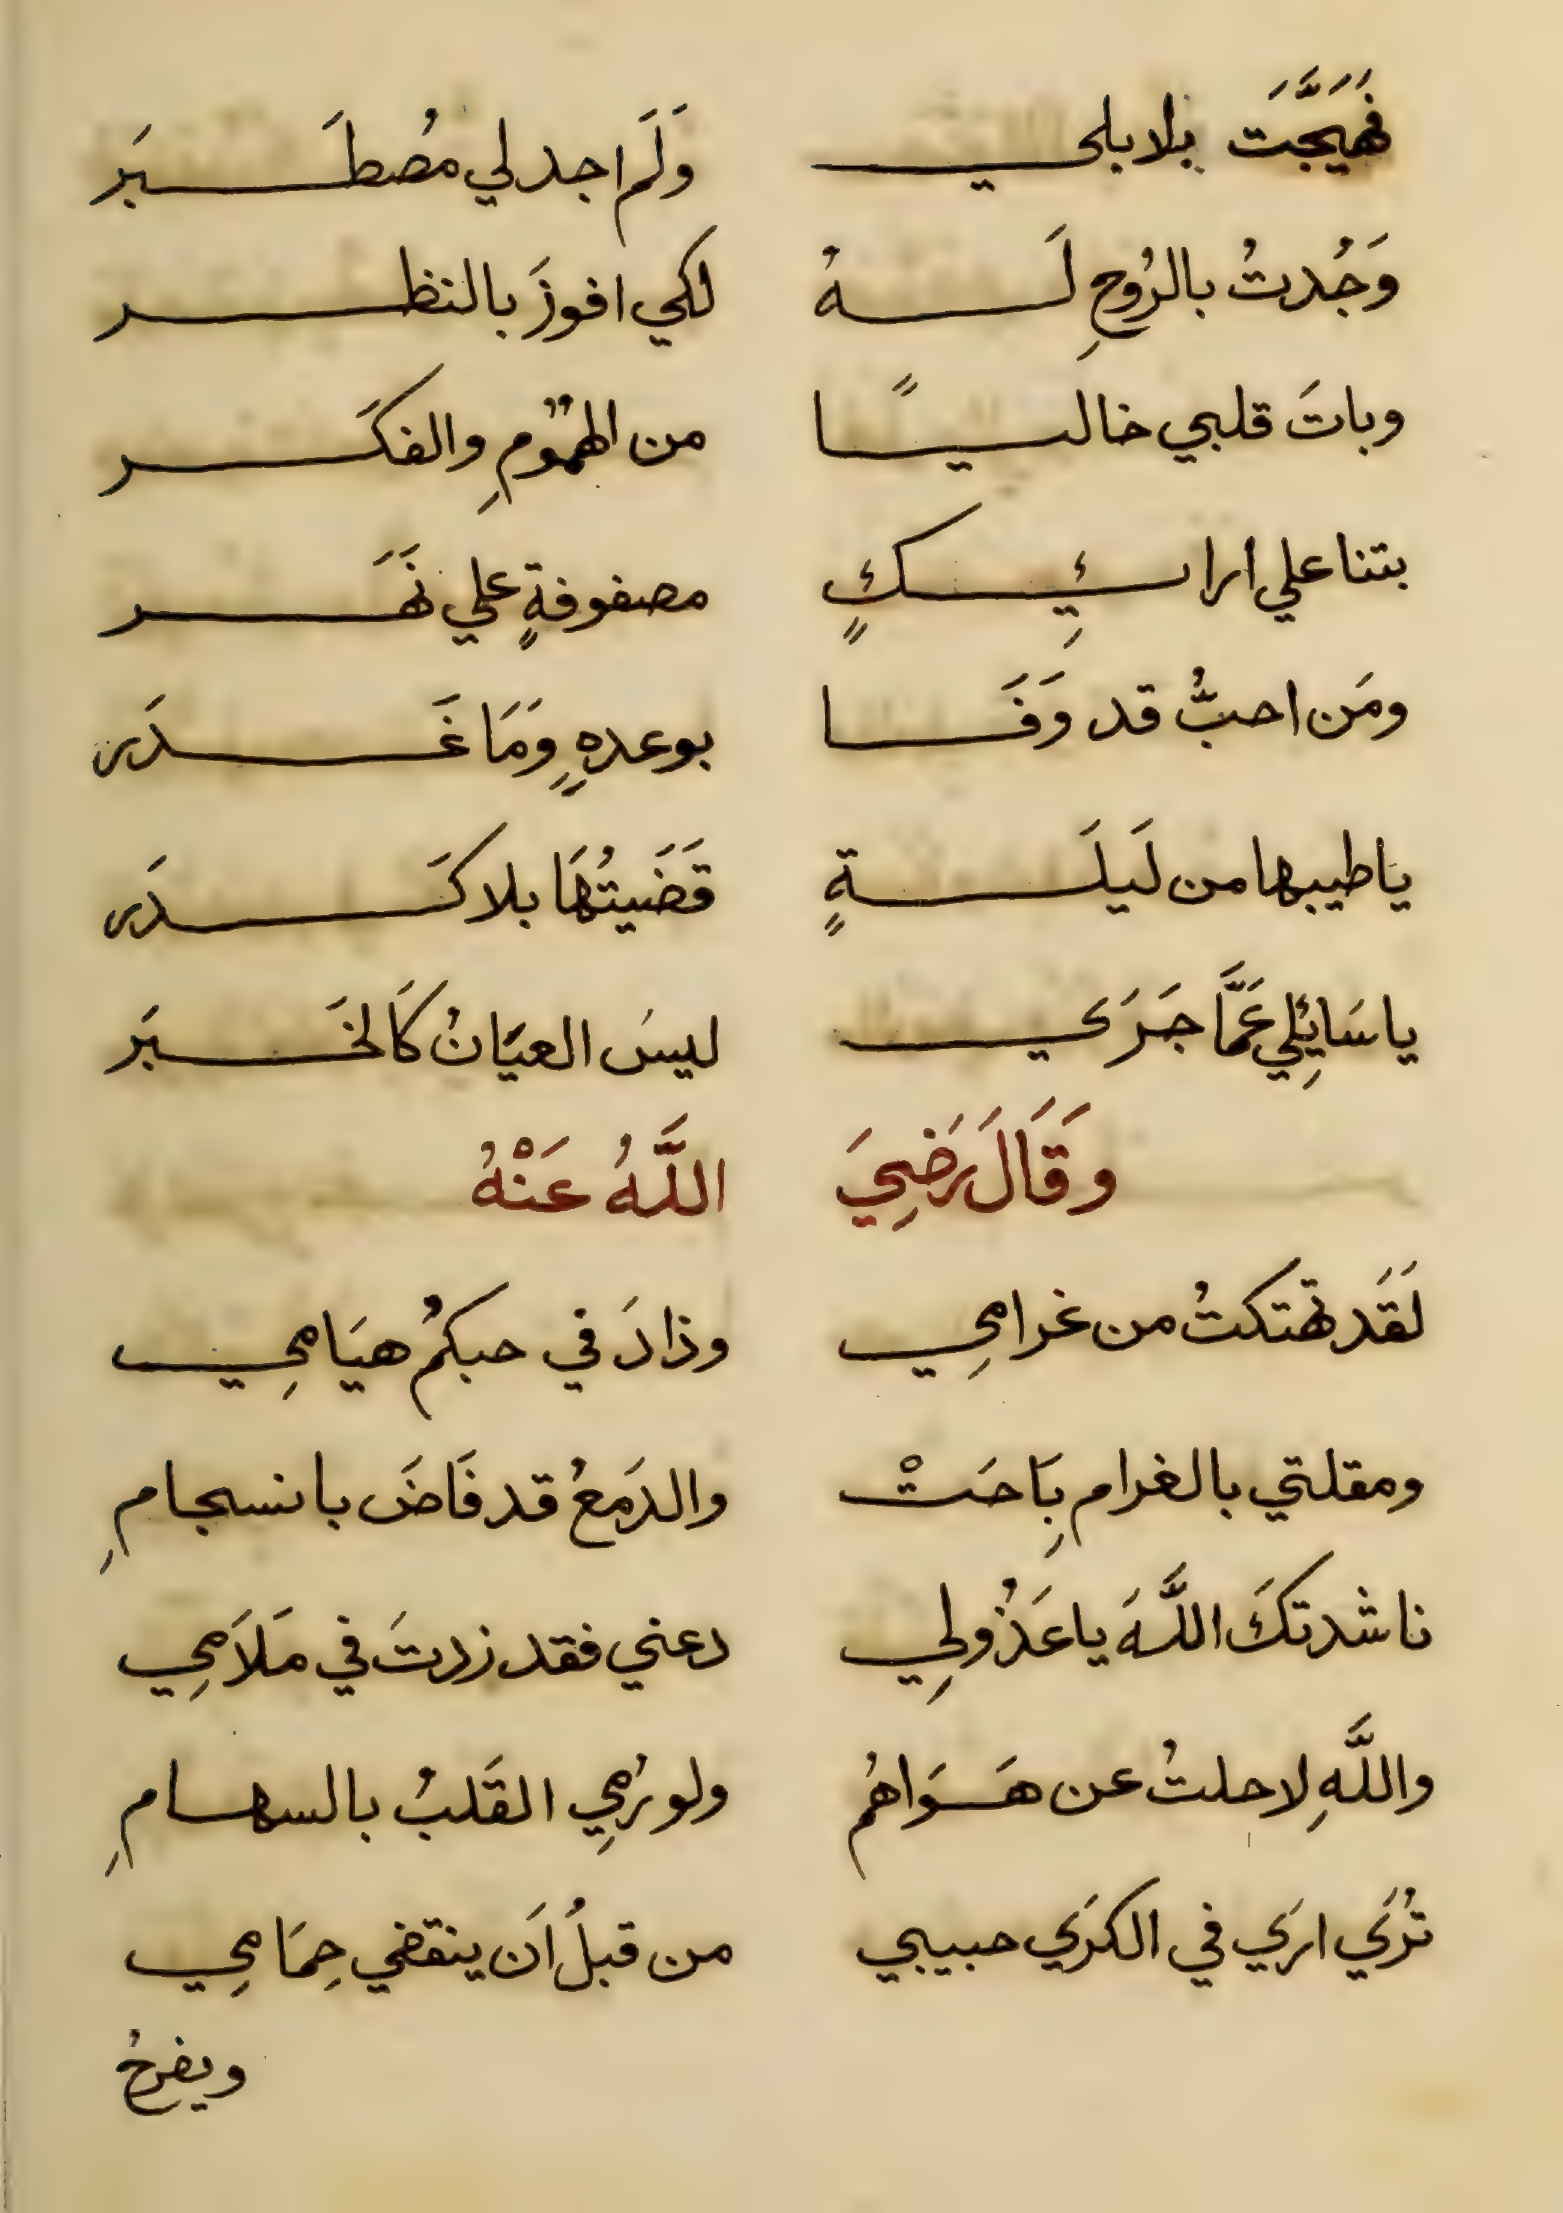 فَهَيَّجَت بلابلي وَلَم اجد لي مُصطَبَر
وَجُدتُ بالرُوحِ لَهُ لكي افوزَ بالنظر
وباتَ قلبي خاليًا من الهمُومِ والفكَر
بتنا علي ارائِكٍ مصفوفةٍ علي نَهَر
ومَن احبُّ قد وَفَا بوعدهِ وَمَا غَدَر
ياطيبها من لَيلَةٍ قَضَيتُهَا بلا كَدَر
يا سَايِلي عَمَّا جَرَي ليسَ العيَانُ كَالخَبَر
وَقَالَ رَضِيَ اللَّهُ عَنْهُ
لَقَد تهتكتُ من غرامِي وذادَ في حبكمُ هيَامِي
ومقلتي بالغرامِ بَاحَتْ والدَمعُ قد فَاضَ بانسجامِ
ناشدتكَ اللَّهَ يا عَذُولِي دعني فقد زدتَ في مَلَامِي
واللَّهِ لا حلتُ عن هَوَاهُم ولو رُمِي القَلبُ بالسهامِ
تُرَي ارَي في الكرَي حبيبي من قبلُ اَن ينقضي حِمَامِي
ويفرحُ